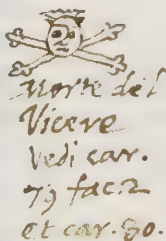 Morte del
Vicere
vedi car.
79 fac. 2
et car. 80.